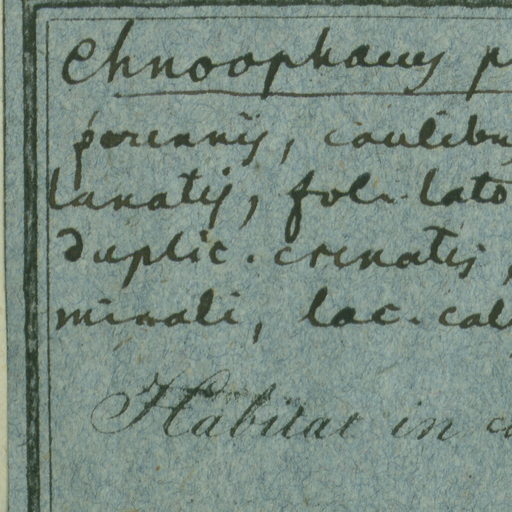 Chnoophacus p
perennis, caulibus
lanatis, fol. lato
duplic. crenatis,
minali, lac. cal
Habitat in c